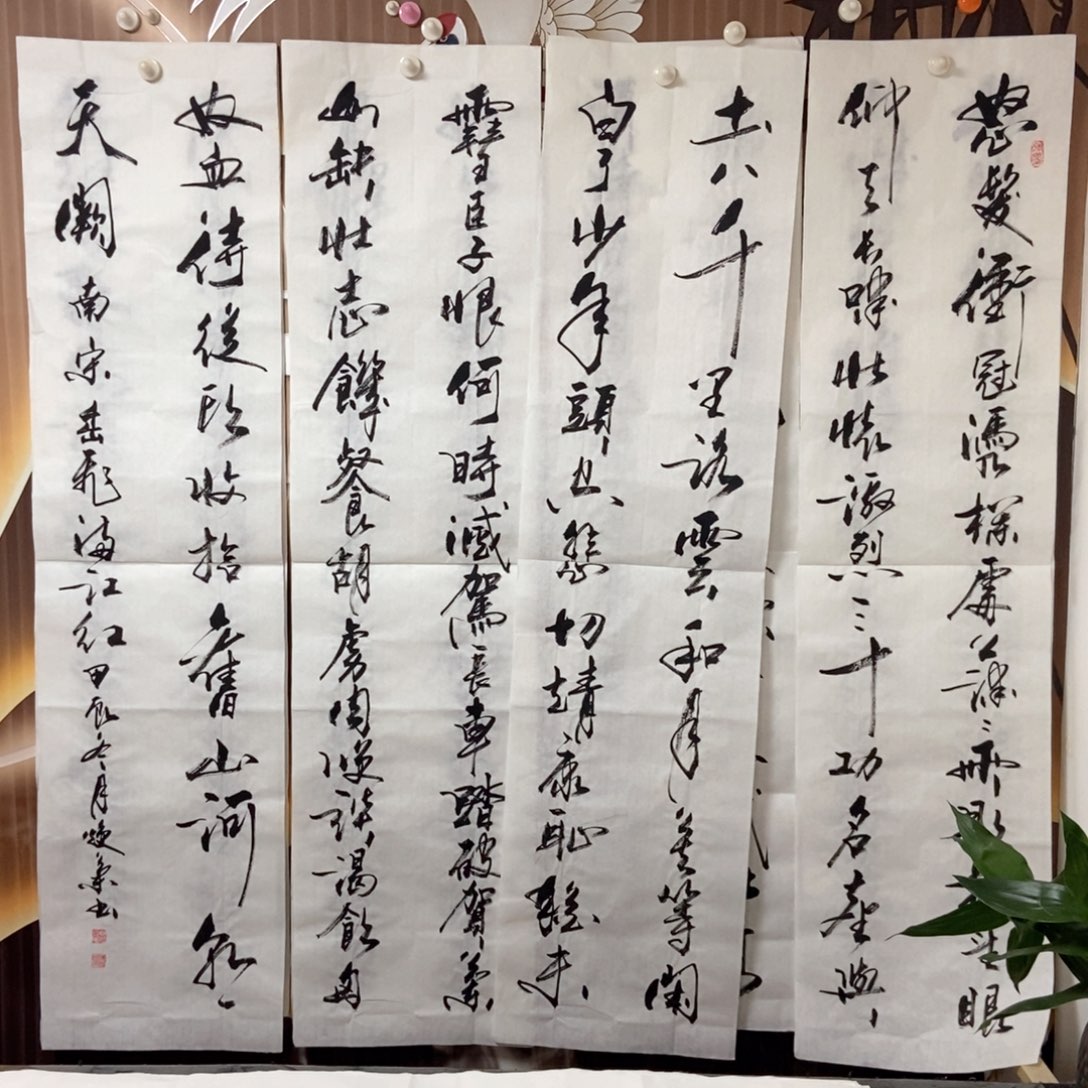 怒髮衝冠憑欄處瀟瀟雨歇抬望眼
仰天長嘯壯懷激烈三十功名塵與
土八千里路雲和月莫等閑
白了少年頭空悲切靖康恥猶未
雪臣子恨何時滅駕長車踏破賀蘭
山缺壯志饑餐胡虜肉笑談渴飲匈
奴血待從頭收拾舊山河朝
天闕 南宋岳飛滿江紅甲辰冬月煥書